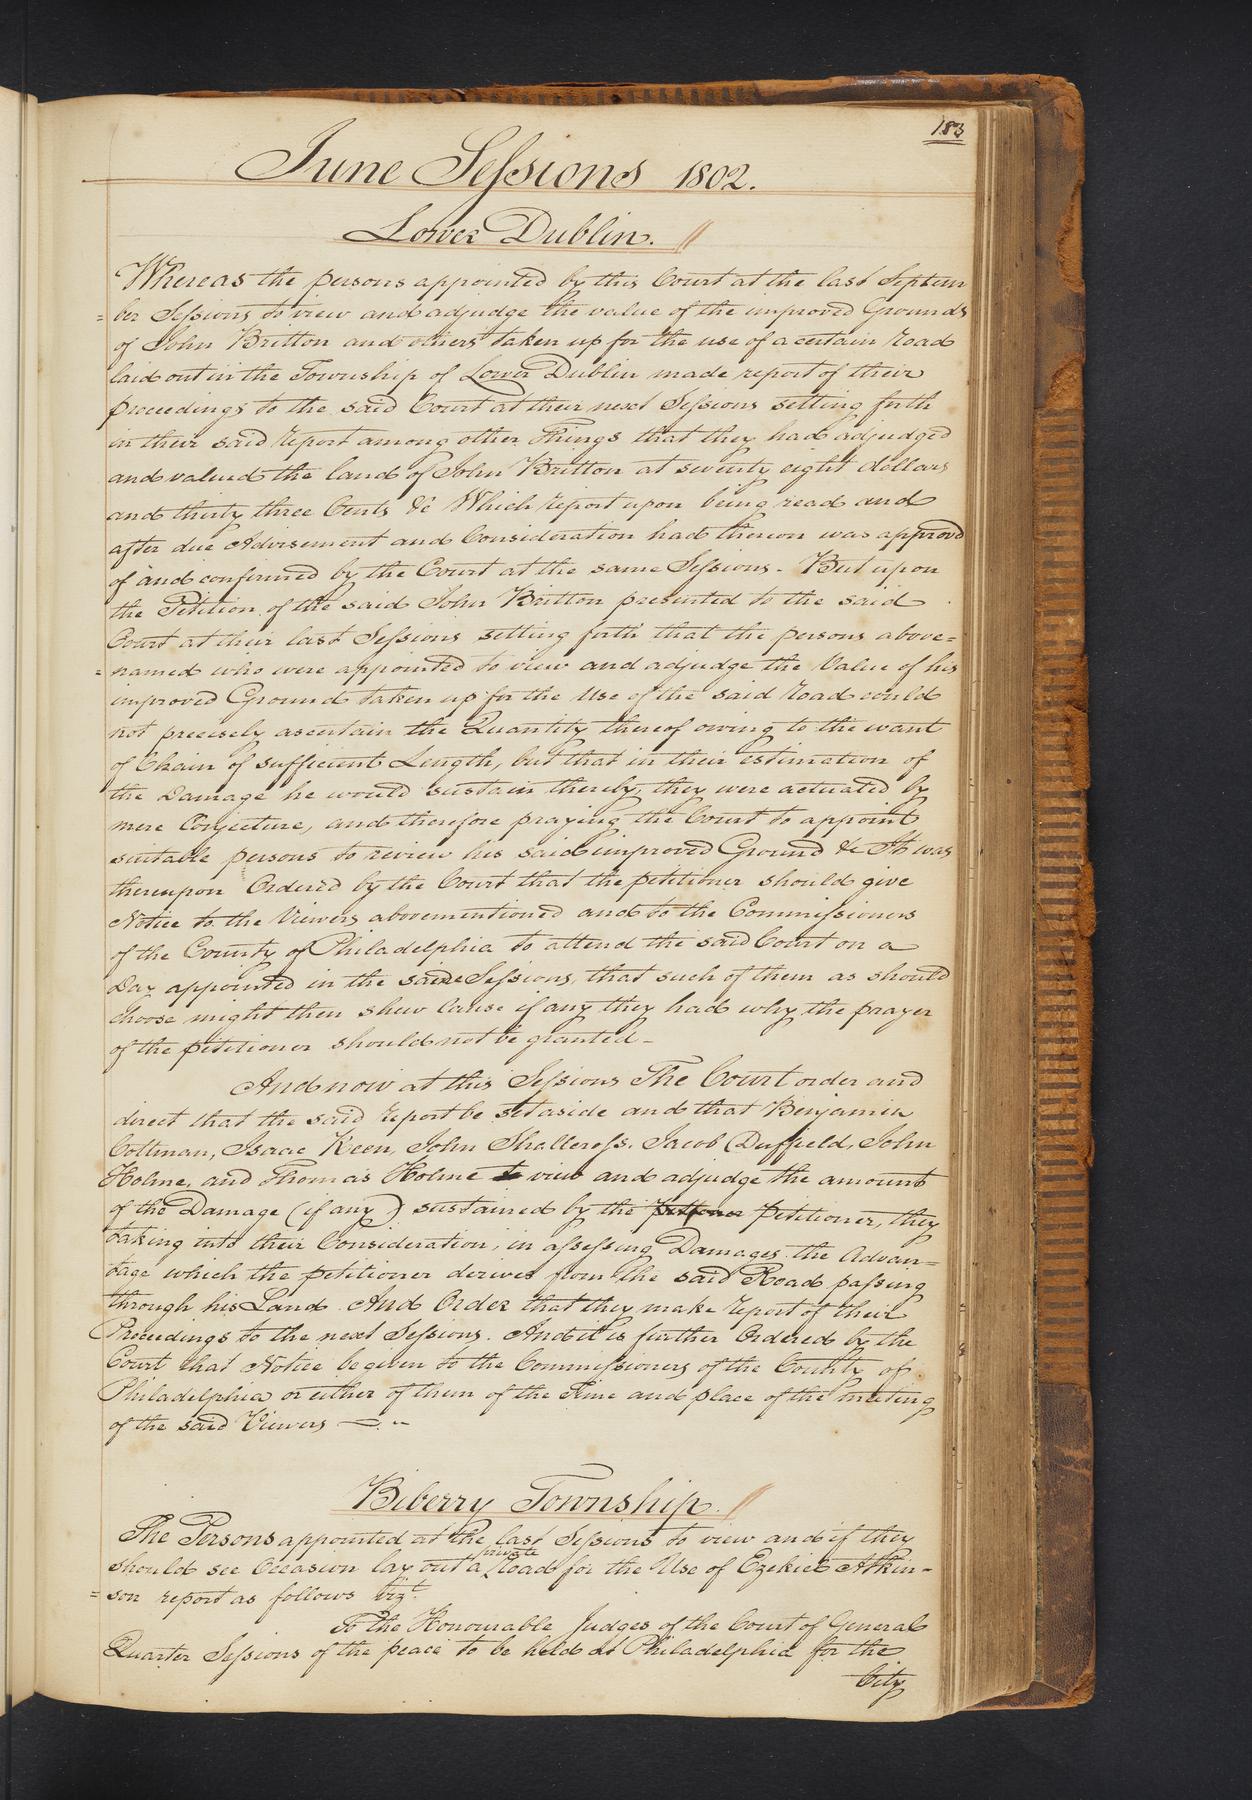 183
June Sessions 1802.
Lower Dublin. //
Whereas the persons appointed by this Court at the last Septem
= ber Sessions to view and adjudge the value of the improved Grounds
of John Britton and others taken up for the use of a certain Road
laid out in the Township of Lower Dublin made report of their
proceedings to the said Court at their next Sessions setting forth
in their said report among other Things that they had adjudged
and valued the land of John Britton at seventy eight dollars
and thirty three Cents &c Which report upon being read and
after due Advisement and Consideration had thereon was approved
of and confirmed by the Court at the same Sessions - But upon
the Petition of the said John Britton presented to the said
Court at their last Sessions setting forth that the persons above=
= named who were appointed to view and adjudge the Value of his
improved Ground taken up for the Use of the said Road could
not precisely ascertain the Quantity thereof owing to the want
of Chain of sufficient Length, but that in their estimation of
the Damage he would sustain thereby, they were actuated by
mere Conjecture, and therefore praying the Court to appoint
suitable persons to review his said improved Ground &c It was
thereupon Ordered by the Court that the petitioner should give
Notice to the Viewers abovementioned and to the Commissioners
of the County of Philadelphia to attend the said Court on a
Day appointed in the same Sessions, that such of them as should
Choose might then shew Cause if any they had why the prayer
of the petitioner should not be granted -
And now at this Sessions The Court order and
direct that the said report be set aside and that Benjamin
Cottman, Isaac Keen, John Shallcross, Jacob Duffield, John
Holme, and Thomas Holme to view and adjudge the amount
of the Damage (if any) sustained by the petitioner, they
taking into their Consideration, in assessing Damages the Advan=
tage which the petitioner derives from the said Road passing
through his Land. And Order that they make report of their
Proceedings to the next Sessions. And it is further Ordered by the
Court that Notice be given to the Commissioners of the County of
Philadelphia or either of them of the Time and place of the meeting
of the said Viewers
Biberry Township. //
The Persons appointed at the last Sessions to view and if they
should see Occasion lay out a private Road for the Use of Ezekiel Atkin-
= son report as follows vizt
To the Honourable Judges of the Court of General
Quarter Sessions of the peace to be held at Philadelphia for the
City